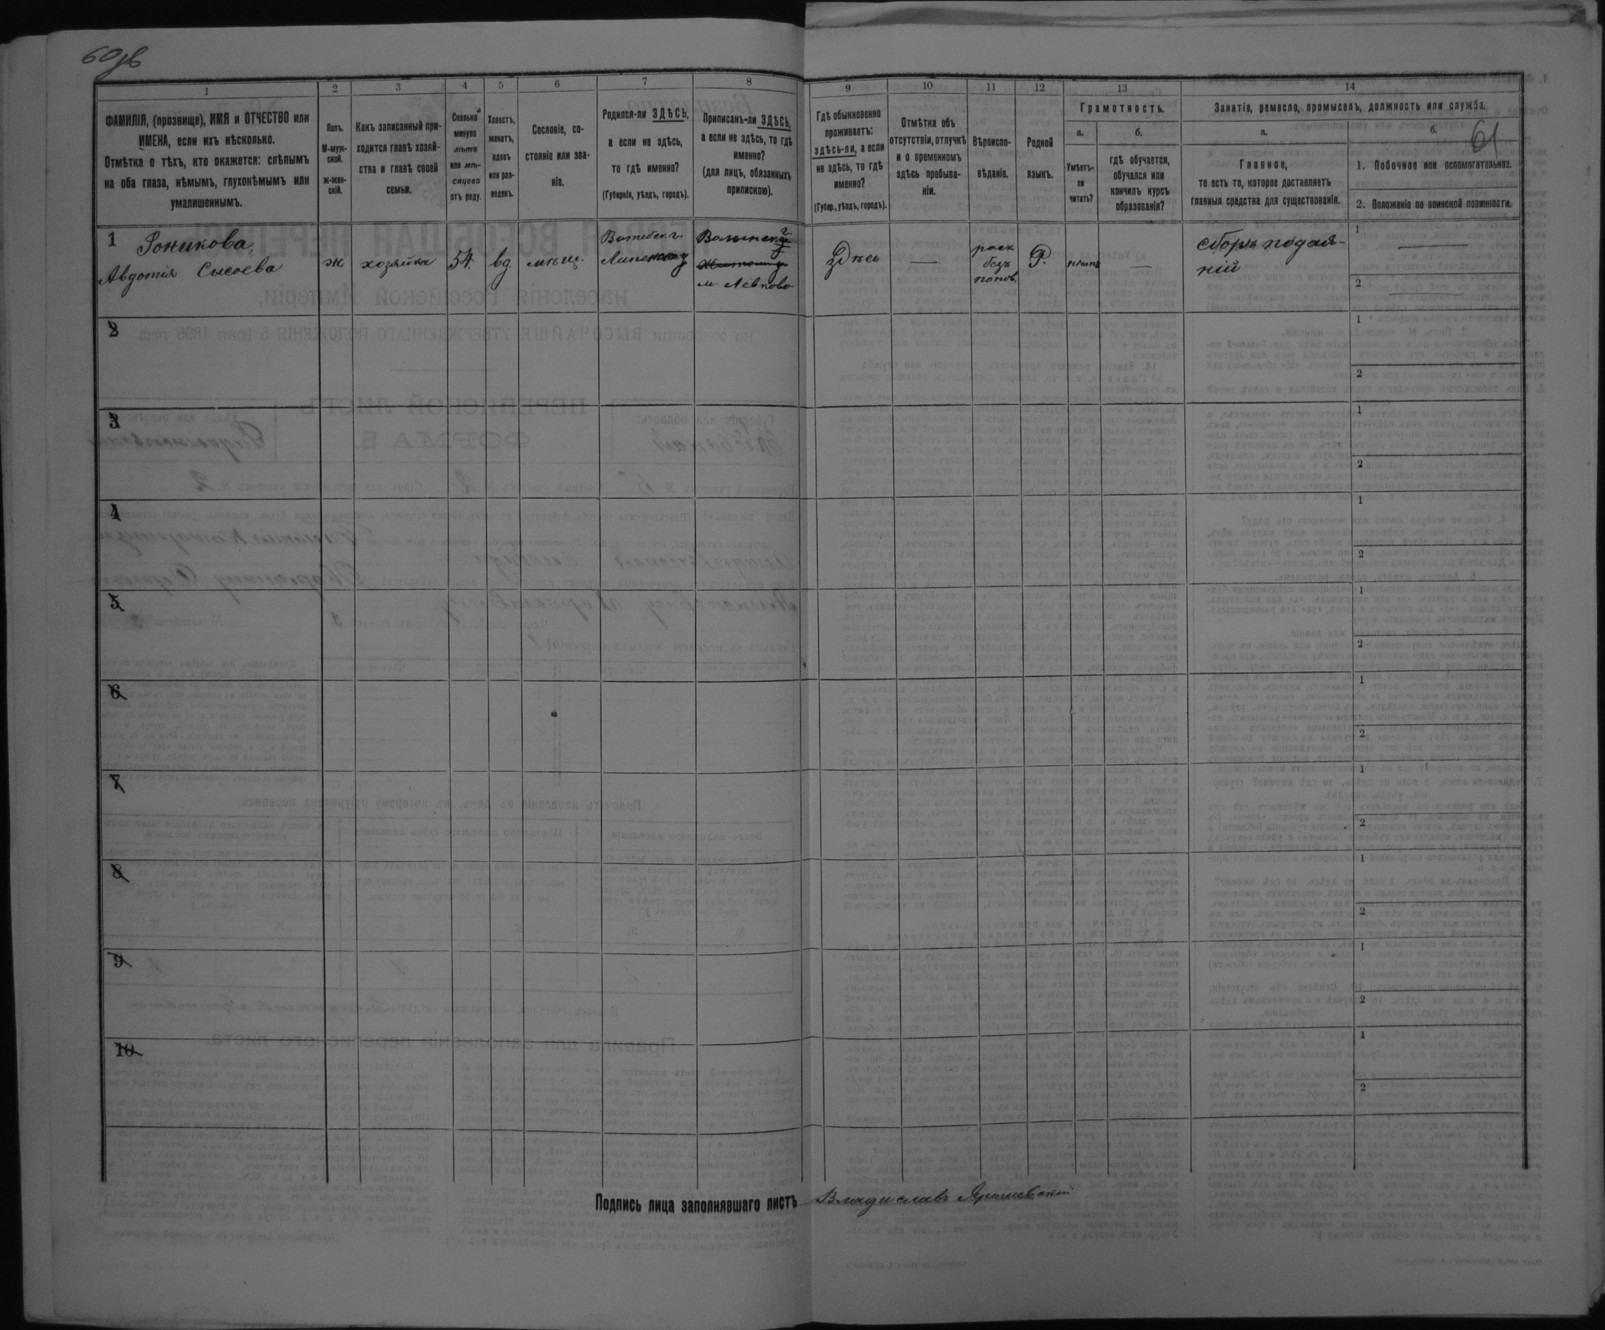 60 об
61
1
2
3
4
5
6
7
8
9
10
11
12
13
14
ФАМИЛІЯ, (прозвище), ИМЯ и ОТЧЕСТВО или
ИМЕНА, если ихъ нѣсколько.
Отмѣтка о тѣхъ, кто окажется: слѣпымъ
на оба глаза, нѣмымъ, глухонѣмымъ или
умалишеннымъ.
Полъ.
М-муж-
ской.
Ж-жен-
скій.
Какъ записанный при-
ходится главѣ хозяй-
ства и главѣ своей
семьи.
Сколько
минуло
лѣтъ
или мѣ-
сяцевъ
отъ роду.
Холостъ,
женатъ,
вдовъ
или раз-
веденъ.
Сословіе, со-
стояніе или зва-
ніе.
Родился-ли ЗДѢСЬ,
а если не здѣсь,
то гдѣ именно?
(Губернія, уѣздъ, городъ).
Приписанъ-ли ЗДѢСЬ,
а если не здѣсь, то гдѣ
именно?
(для лицъ, обязанныхъ
припискою).
Гдѣ обыкновенно
проживаетъ:
здѣсь-ли, а если
не здѣсь, то гдѣ
именно?
(Губер., уѣздъ, городъ).
Отмѣтка объ
отсутствіи, отлучкѣ
и о временномъ
здѣсь пребыва-
ніи.
Вѣроиспо-
вѣданіе.
Родной
языкъ.
Грамотность.
а.
Умѣетъ-
ли
читать?
б.
гдѣ обучается,
обучался или
кончилъ курсъ
образованія?
Занятіе, ремесло, промыселъ, должность или служба.
а.
Главное,
то есть то, которое доставляетъ
главныя средства для существованія.
б.
1. Побочное или вспомогательное.
2. Положеніе по воинской повинности.
1
Роникова
Авдотія Сысоева
ж
хозяйка
54
вд
мѣщ.
Витебск г.
Волынск г.
Житом у
м Левково
Здѣсь
—
раск
безъ
попов.
Р.
нѣтъ
—
сборъ подая-
ній
1 —
2 —
2
1
2
3
1
2
4
1
2
5
1
2
6
1
2
7
1
2
8
1
2
9
1
2
10
1
2
Подпись лица заполнявшаго листъ Владиславъ